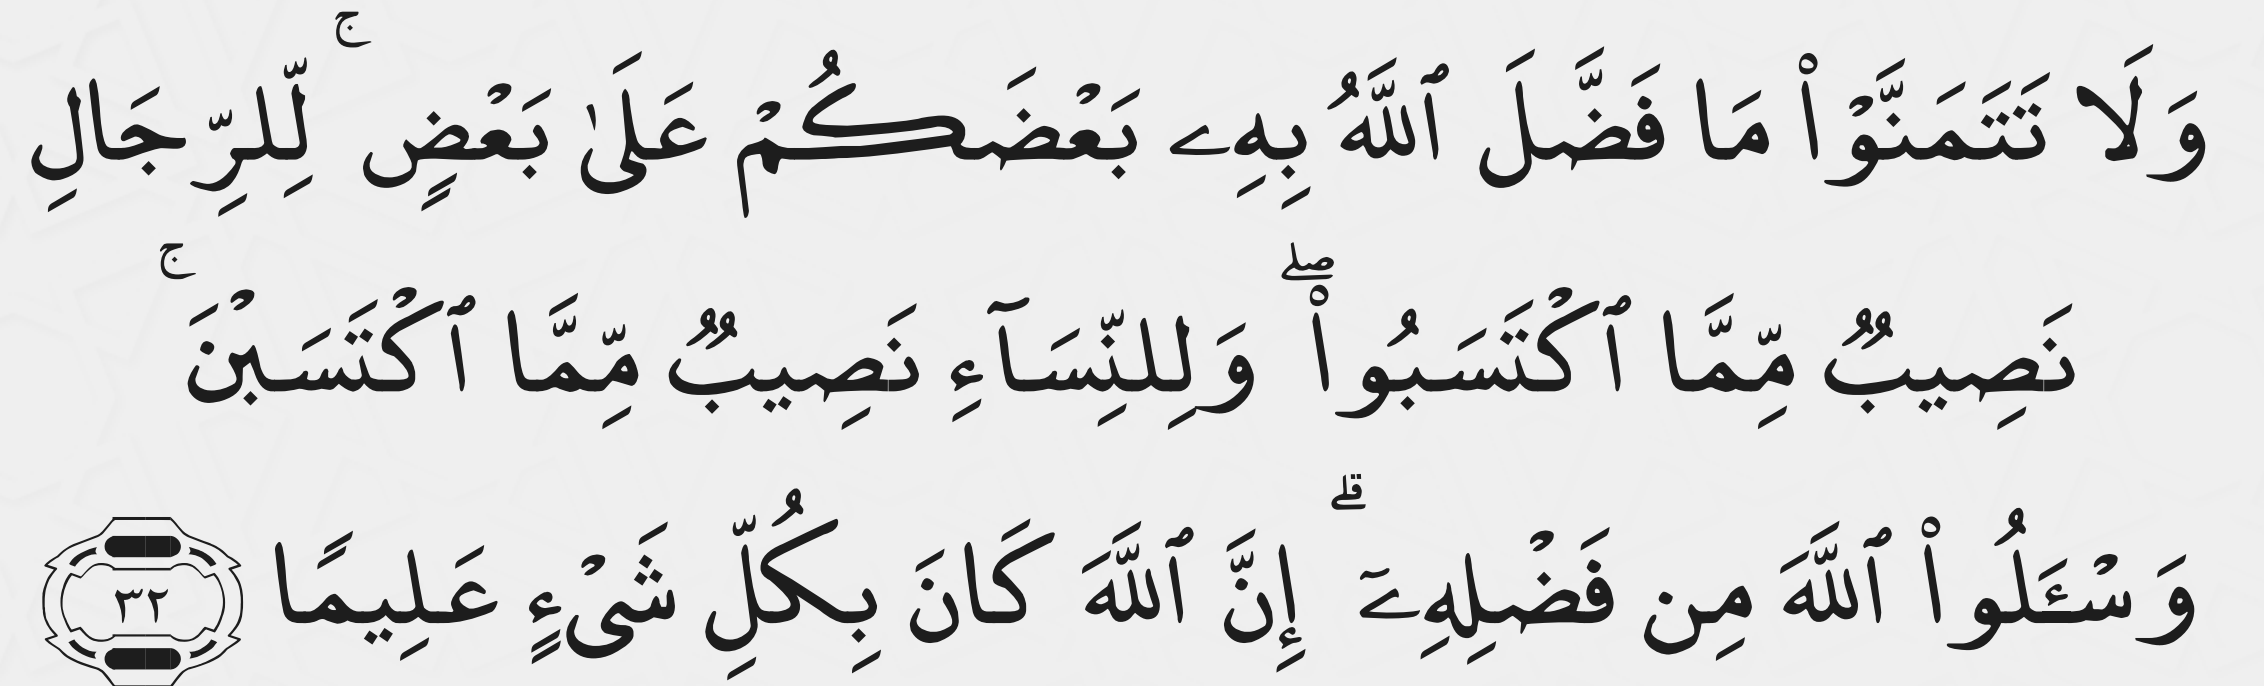 وَلَا تَتَمَنَّوْا۟ مَا فَضَّلَ ٱللَّهُ بِهِۦ بَعْضَكُمْ عَلَىٰ بَعْضٍ ۚ لِّلرِّجَالِ
نَصِيبٌ مِّمَّا ٱكْتَسَبُوا۟ ۖ وَلِلنِّسَآءِ نَصِيبٌ مِّمَّا ٱكْتَسَبْنَ ۚ
وَسْـَٔلُوا۟ ٱللَّهَ مِن فَضْلِهِۦٓ ۗ إِنَّ ٱللَّهَ كَانَ بِكُلِّ شَىْءٍ عَلِيمًا ٣٢